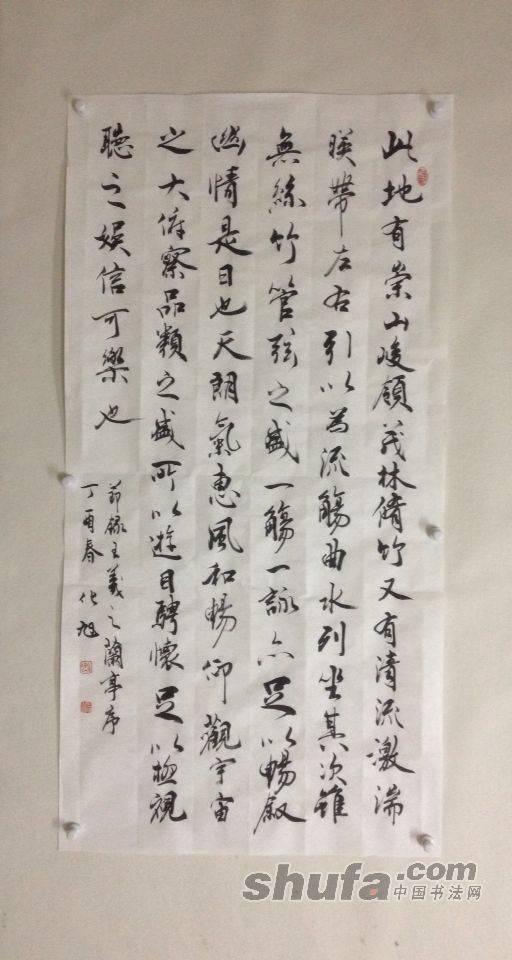 此地有崇山峻領茂林脩竹又有清流激湍
暎帶左右引以為流觴曲水列坐其次雖
無絲竹管弦之盛一觴一詠亦足以暢敘
幽情是日也天朗氣惠風和暢仰觀宇宙
之大俯察品類之盛所以遊目騁懷足以極視
聽之娛信可樂也
節錄王羲之蘭亭序
丁酉春 化旭
shufa.com
中国书法网